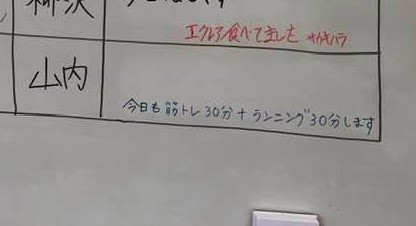 柳沢
エクレア食べてました サカキバラ
山内
今日も筋トレ30分+ランニング30分します